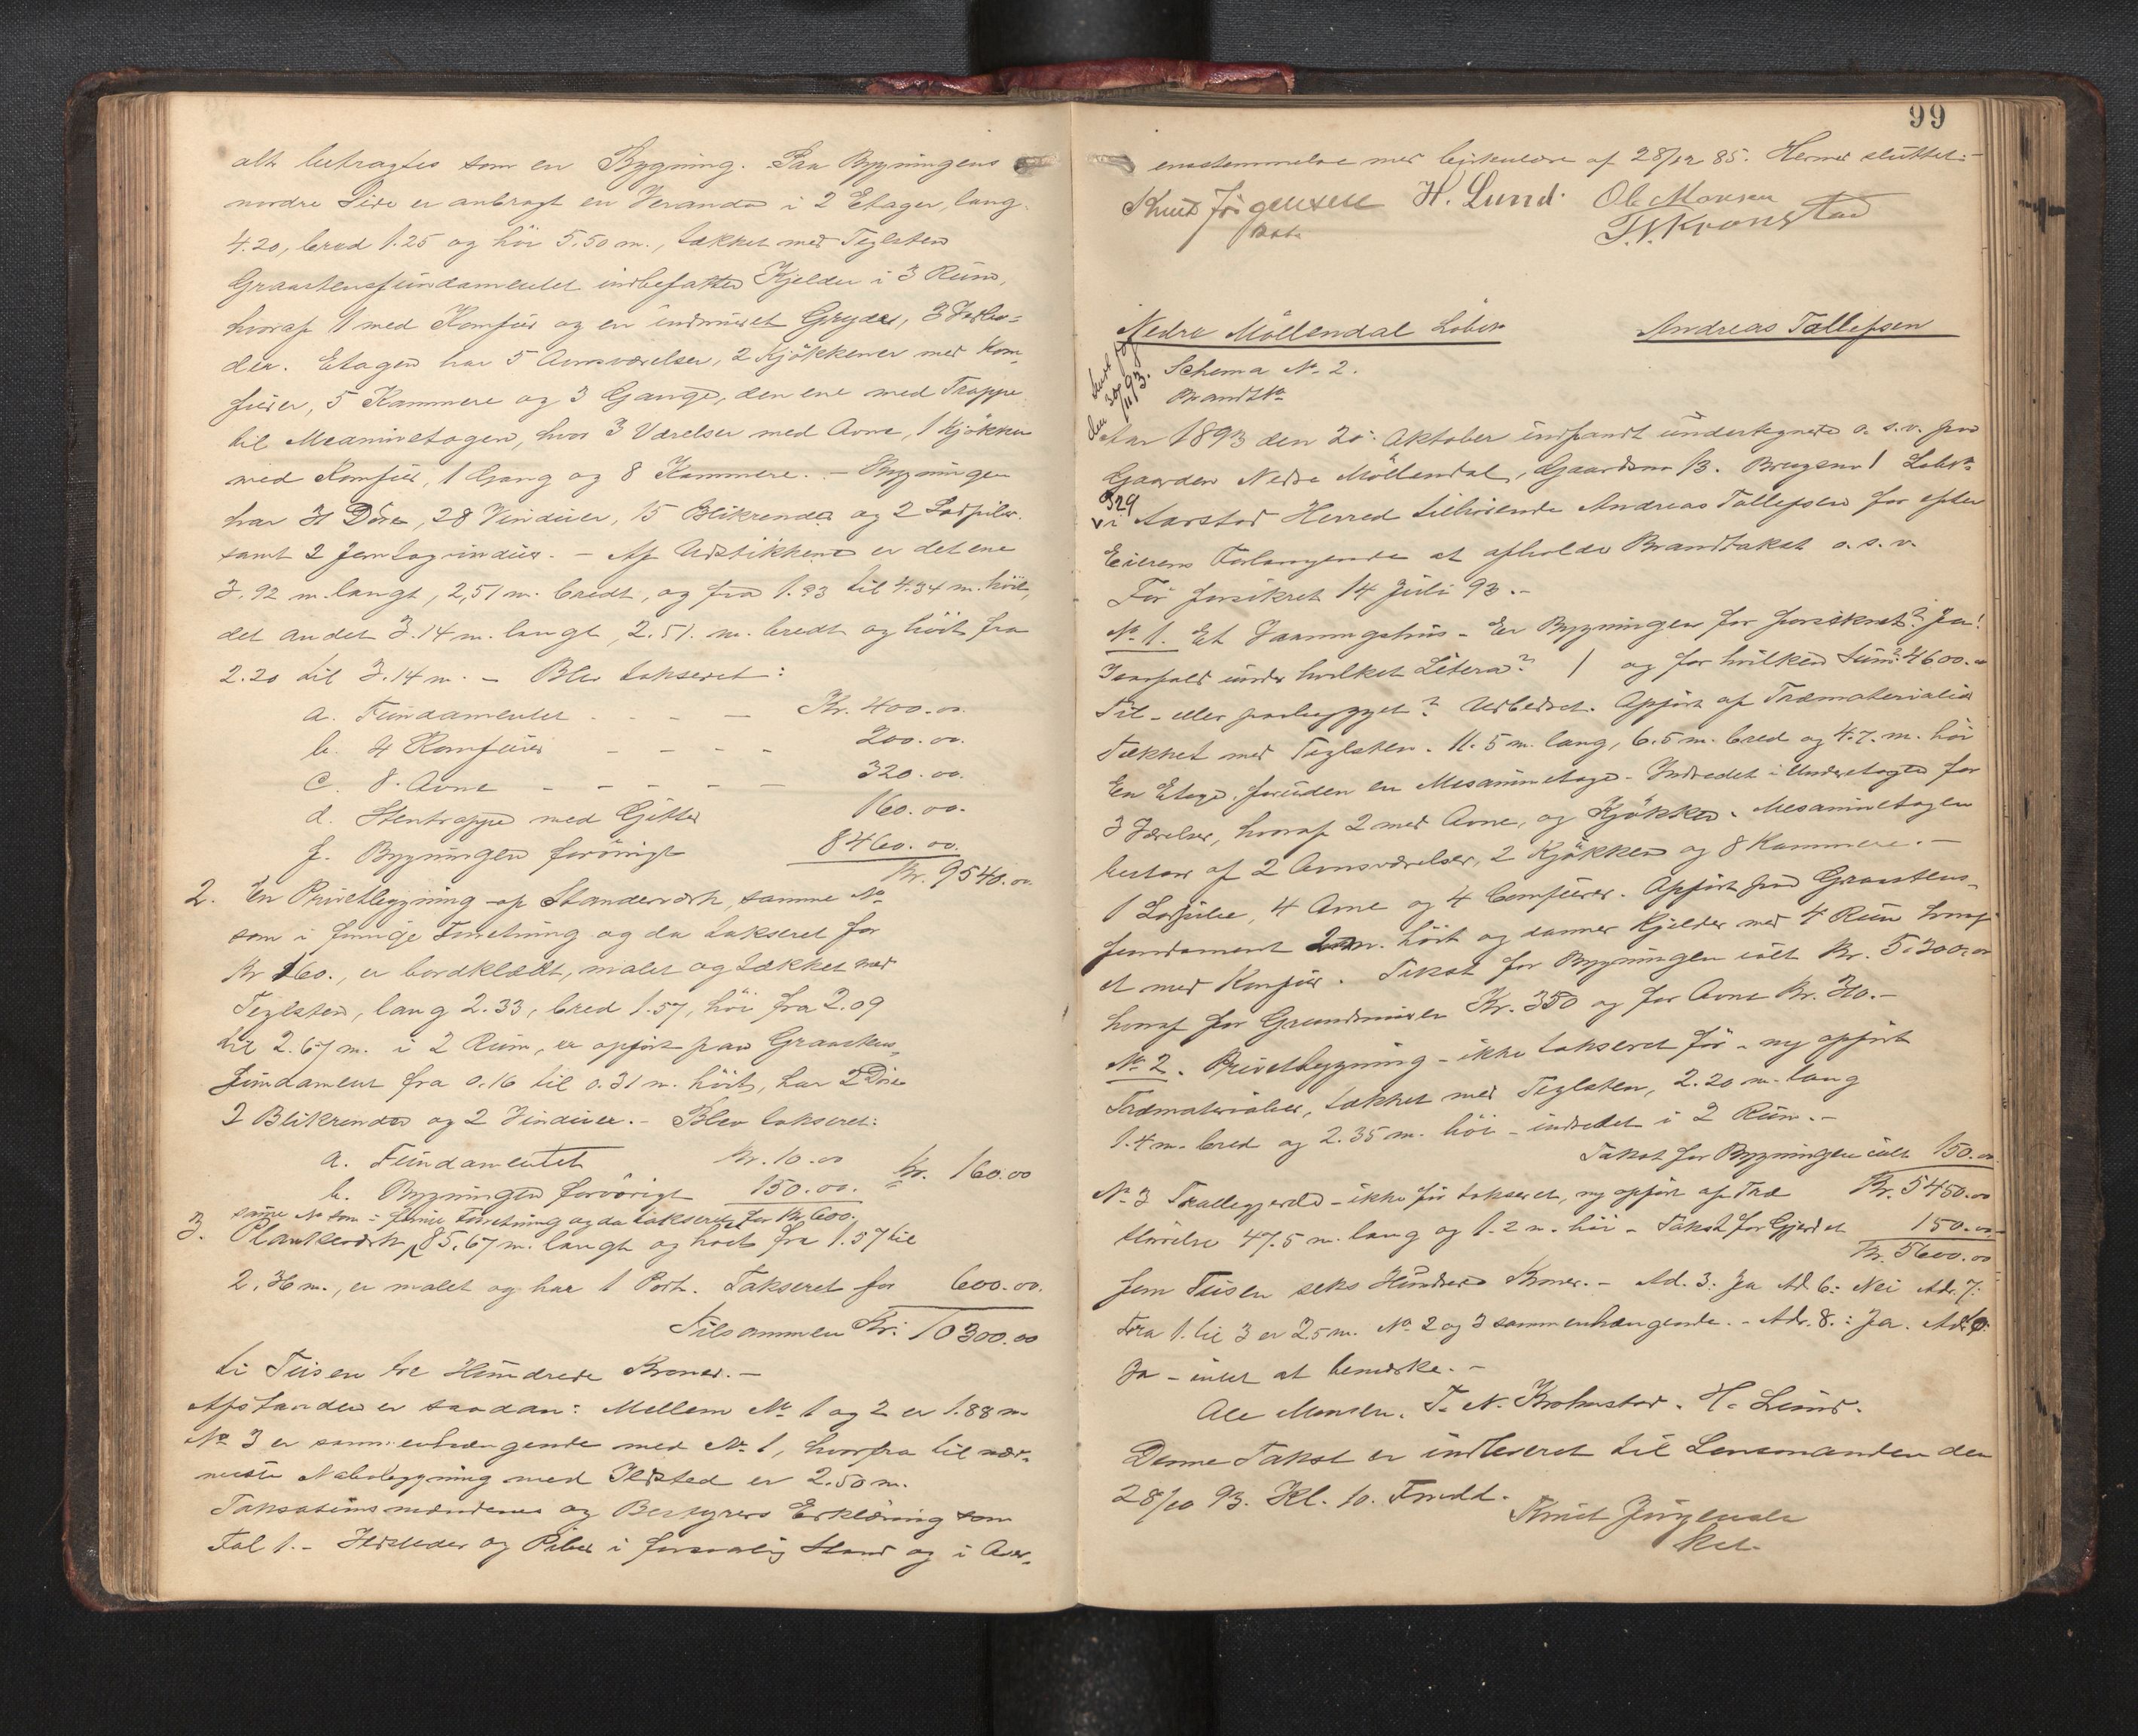 alt betragtes som en Bygning. Paa Bygningens
nordre Side er anbragt en Veranda i 2 Etager, lang
4.20, bred 1.25 og høi 5.50 m., tækket med Teglsten
Graastensfundamentet indbefatter Kjelder i 3 Rum,
hvoraf 1 med Komfur og en indmuret Gryde,
der. Etagen har 5 Ovnsværelser, 2 Kjøkkener med Kom-
furer, 5 Kammere og 3 Gange, den ene med Trappe
til Mesaninetagen, hvor 3 Værelser med Ovne, 1 Kjøkken
med Komfur, 1 Gang og 8 Kammere. - Bygningen
har Døre, 28 Vinduer, 15 Blikrender og 2
samt 2 Jerntagvinduer. - Af Udstikkene er det ene
3.92 m. langt, 2,51 m. bredt, og fra 1.93 til 4.34 m. høit,
det andet 3.14 m. langt, 2.51. m. bredt og høit fra
2.20 til 3.14 m. - Blev takseret:
a. Fundamentet - - - Kr. 400.00.
b. 4 Komfurer - - - - 200.00.
c. 8. Ovne - - - - - 320.00.
d. Stentrappe med Gitter 160.00.
f. Bygningen forøvrigt 8460.00.
Kr. 9540.00.
2. En Privetbygning af Standerværk, samme No
som i forrige Forretning og da takseret for
Kr 160., er bordklædt, malet og tækket med
Teglsten, lang 2.33, bred 1.57, høi fra 2.09
til 2.67 m. i 2 Rum, er opført paa Graastens-
fundament fra 0.16 til 0.31 m. høit, har 2 Døre
2 Blikrender og 2 Vinduer. - Blev takseret:
a. Fundamentet Kr. 10.00
b. Bygningen forøvrigt 150.00. Kr. 160.00
samme No som i forrige Forretning og da takseret for Kr 600.
3. Plankeværk, 85,67 m. langt og høit fra 1.57 til
2,36 m., er malet og har 1 Port. Takseret for 600.00.
Tilsammen Kr. 10300.00
ti Tusen tre Hundrede Kroner. -
Afstanden er saadan: Mellem No 1 og 2 er 1.88 m
No 3 er sammenhængende med No 1, hvorfra til nær-
meste Nabobygning med Ildsted er 2.50 m.
Taksationsmændenes og Bestyrers Erklæring som
Fol 1. - Ildsteder og Piber i forsvarlig Stand og i Over-
99
ensstemmelse med Cirkulære af 28/12 85. Hermed sluttet: -
Knut Jørgensen H. Lund. Ole Monsen
T. N. Kronstad
Nedre Møllendal Løbeno Andreas Tollefsen
Schema No 2.
Brandtkt.
den 30/11 93.
Aar 1893 den 25. Oktober indfandt undertegnede o. s. v. paa
Gaarden Nedre Møllendal, Gaardsno 13. Brugsno 1 Løbeno
329
i Aarstad Herred tilhørende Andreas Tollefsen for efter
Eierens Forlangende at afholde Brandtakst o. s. v.
Før forsikret 14 Juli 93. -
No 1. Et Vaaningshus - Er Bygningen før forsikret? Ja!
Isaafald under hvilket Litera? 1 og for hvilken Sum? 4600.00
Til- eller paabygget? Udbedret. Opført af Træmaterialier
Tækket med Teglsten. 11.5 m. lang, 6.5 m. bred og 4.7. m. høi
En Etage, foruden en Mesaninetage. Indredet i Underetagen for
3 Værelser, hvoraf 2 med Ovne, og Kjøkken. Mesaninetagen
bestaar af 2 Ovnsværelser, 2 Kjøkken og 8 Kammere. -
1 4 Ovne og 4 Comfurer. Opført paa Graastens-
fundament 2 m. høit og danner Kjelder med 4 Rum hvoraf
et med Komfur. Takst for Bygningen ialt Kr. 5.300.00
hvoraf for Grundmuren Kr. 350 og for Ovne Kr. -
No 2. Privetbygning - ikke takseret før - ny opført
Træmaterialier, tækket med Teglsten, 2.20 m. lang
1.4 m. bred og 2.35 m. høi - indredet i 2 Rum. -
Takst for Bygningen ialt 150.00.
Kr. 5450.00
No 3 Stakkegjerde - ikke før takseret, ny opført af Træ
Størrelse 47.5 m. lang og 1.2 m. høi - Takst for Gjerdet 150.00
Kr. 5600.00
fem Tusen seks Hundrede Kroner. - Ad. 3: Ja Ad 6: Nei Ad. 7:
Fra 1. til 3 er 2.5 m. No 2 og 3 sammenhængende. - Ad. 8.: Ja. Ad 9:
Ja - intet at bemærke. -
Ole Monsen. T. N. Krohnstad. H. Lund.
Denne Takst er indleveret til Lensmanden den
28/10 93. Kl. 10. Frmdd.
Knut Jørgensen